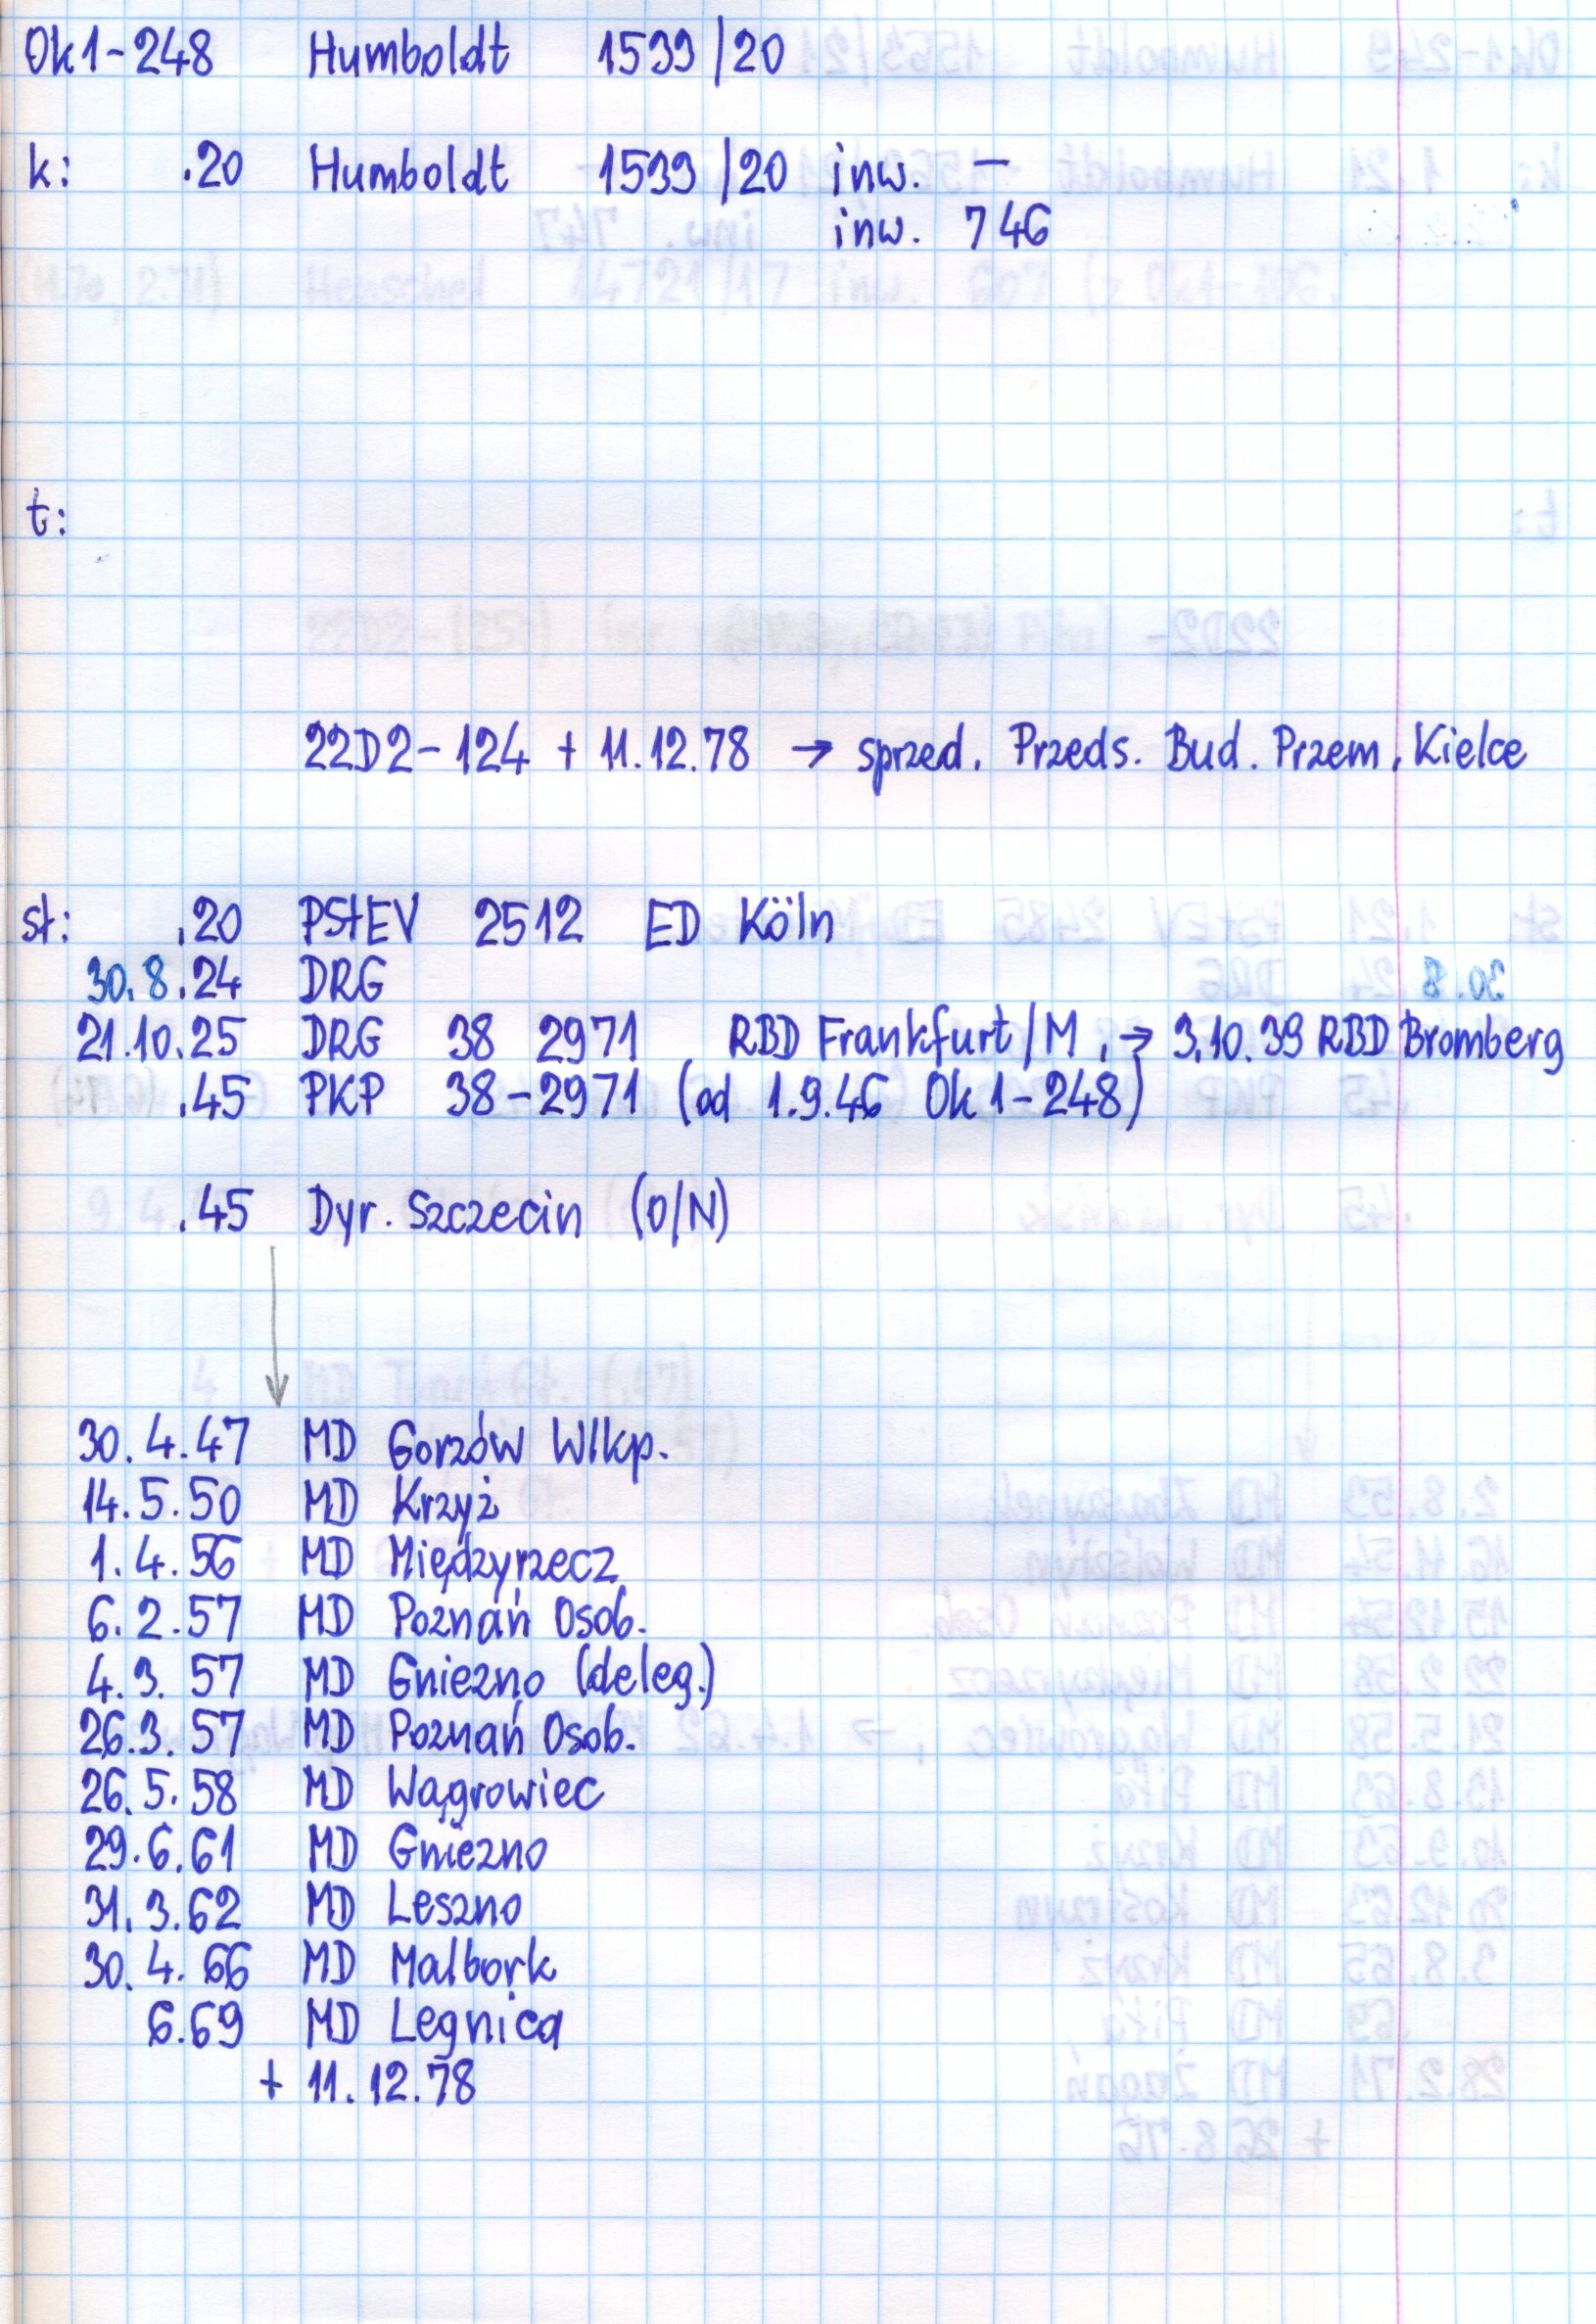 Ok1-248 Humboldt 1539/20
k: .20 Humboldt 1539/20 inw. –
inw. 746
t:
22D2-124 + 11.12.78 → sprzed. Przeds. Bud. Przem. Kielce
st: .20 PStEV 2512 ED Köln
30.8.24 DRG
21.10.25 DRG 38 2971 RBD Frankfurt/M, → 3.10.39 RBD Bromberg
.45 PKP 38-2971 (od 1.9.46 Ok1-248)
.45 Dyr. Szczecin (O/N)
30.4.47 MD Gorzów Wlkp.
14.5.50 MD Krzyż
1.4.56 MD Międzyrzecz
6.2.57 MD Poznań Osob.
4.3.57 MD Gniezno (deleg.)
26.3.57 MD Poznań Osob.
26.5.58 MD Wągrowiec
29.6.61 MD Gniezno
31.3.62 MD Leszno
30.4.66 MD Malbork
6.69 MD Legnica
+ 11.12.78